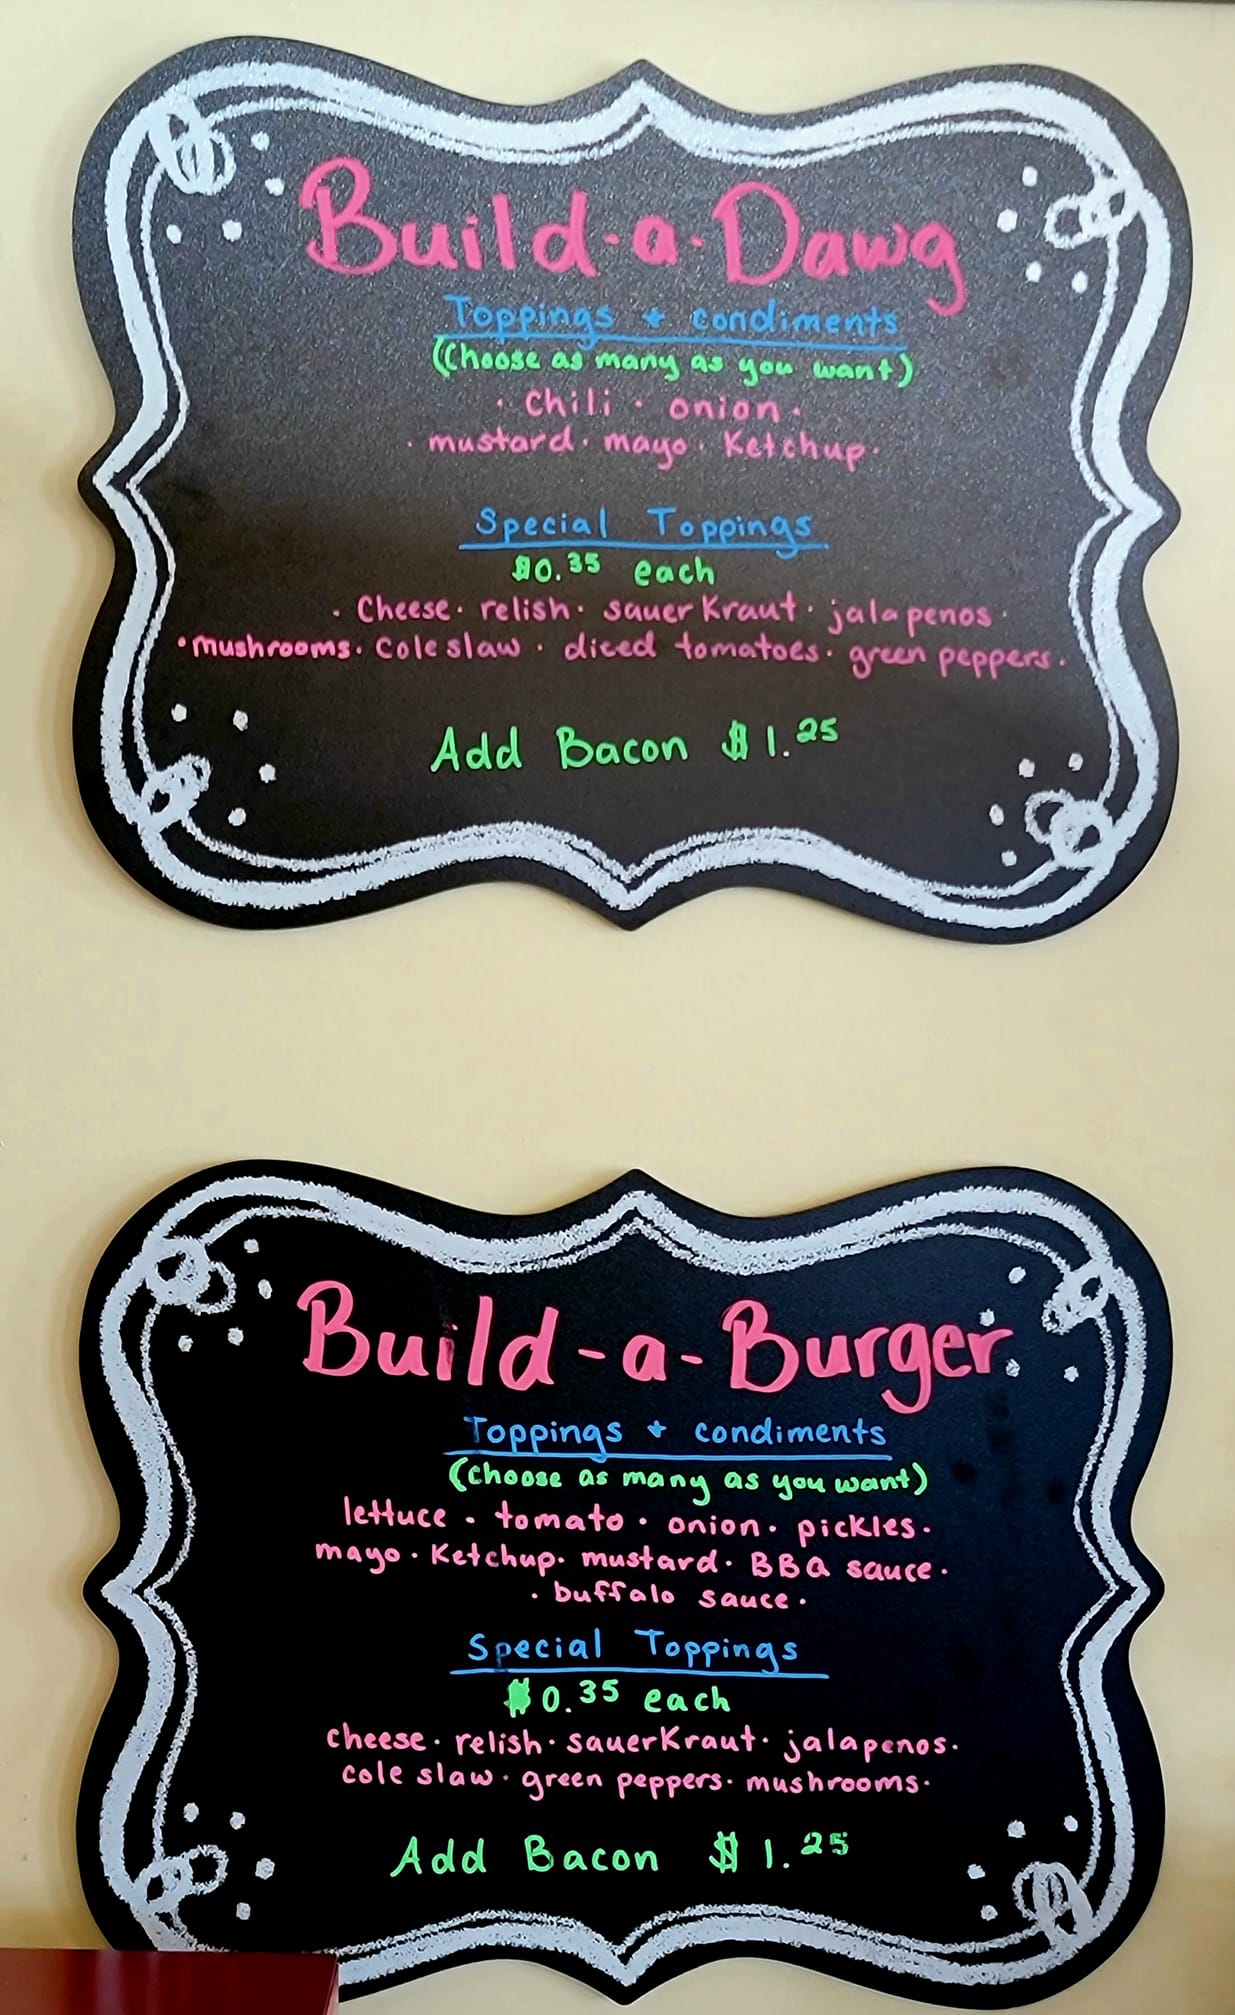 Build·a·Dawg
Toppings + condiments
(Choose as many as you want)
· Chili · onion ·
· mustard · mayo · Ketchup ·
Special Toppings
$0.35 each
· Cheese · relish · sauerKraut · jalapenos ·
· mushrooms · Cole slaw · diced tomatoes · green peppers ·
Add Bacon $1.25
Build-a-Burger
Toppings + condiments
(choose as many as you want)
lettuce · tomato · onion · pickles ·
mayo · Ketchup · mustard · BBQ sauce ·
· buffalo sauce ·
Special Toppings
$0.35 each
cheese · relish · sauerKraut · jalapenos ·
cole slaw · green peppers · mushrooms ·
Add Bacon $1.25